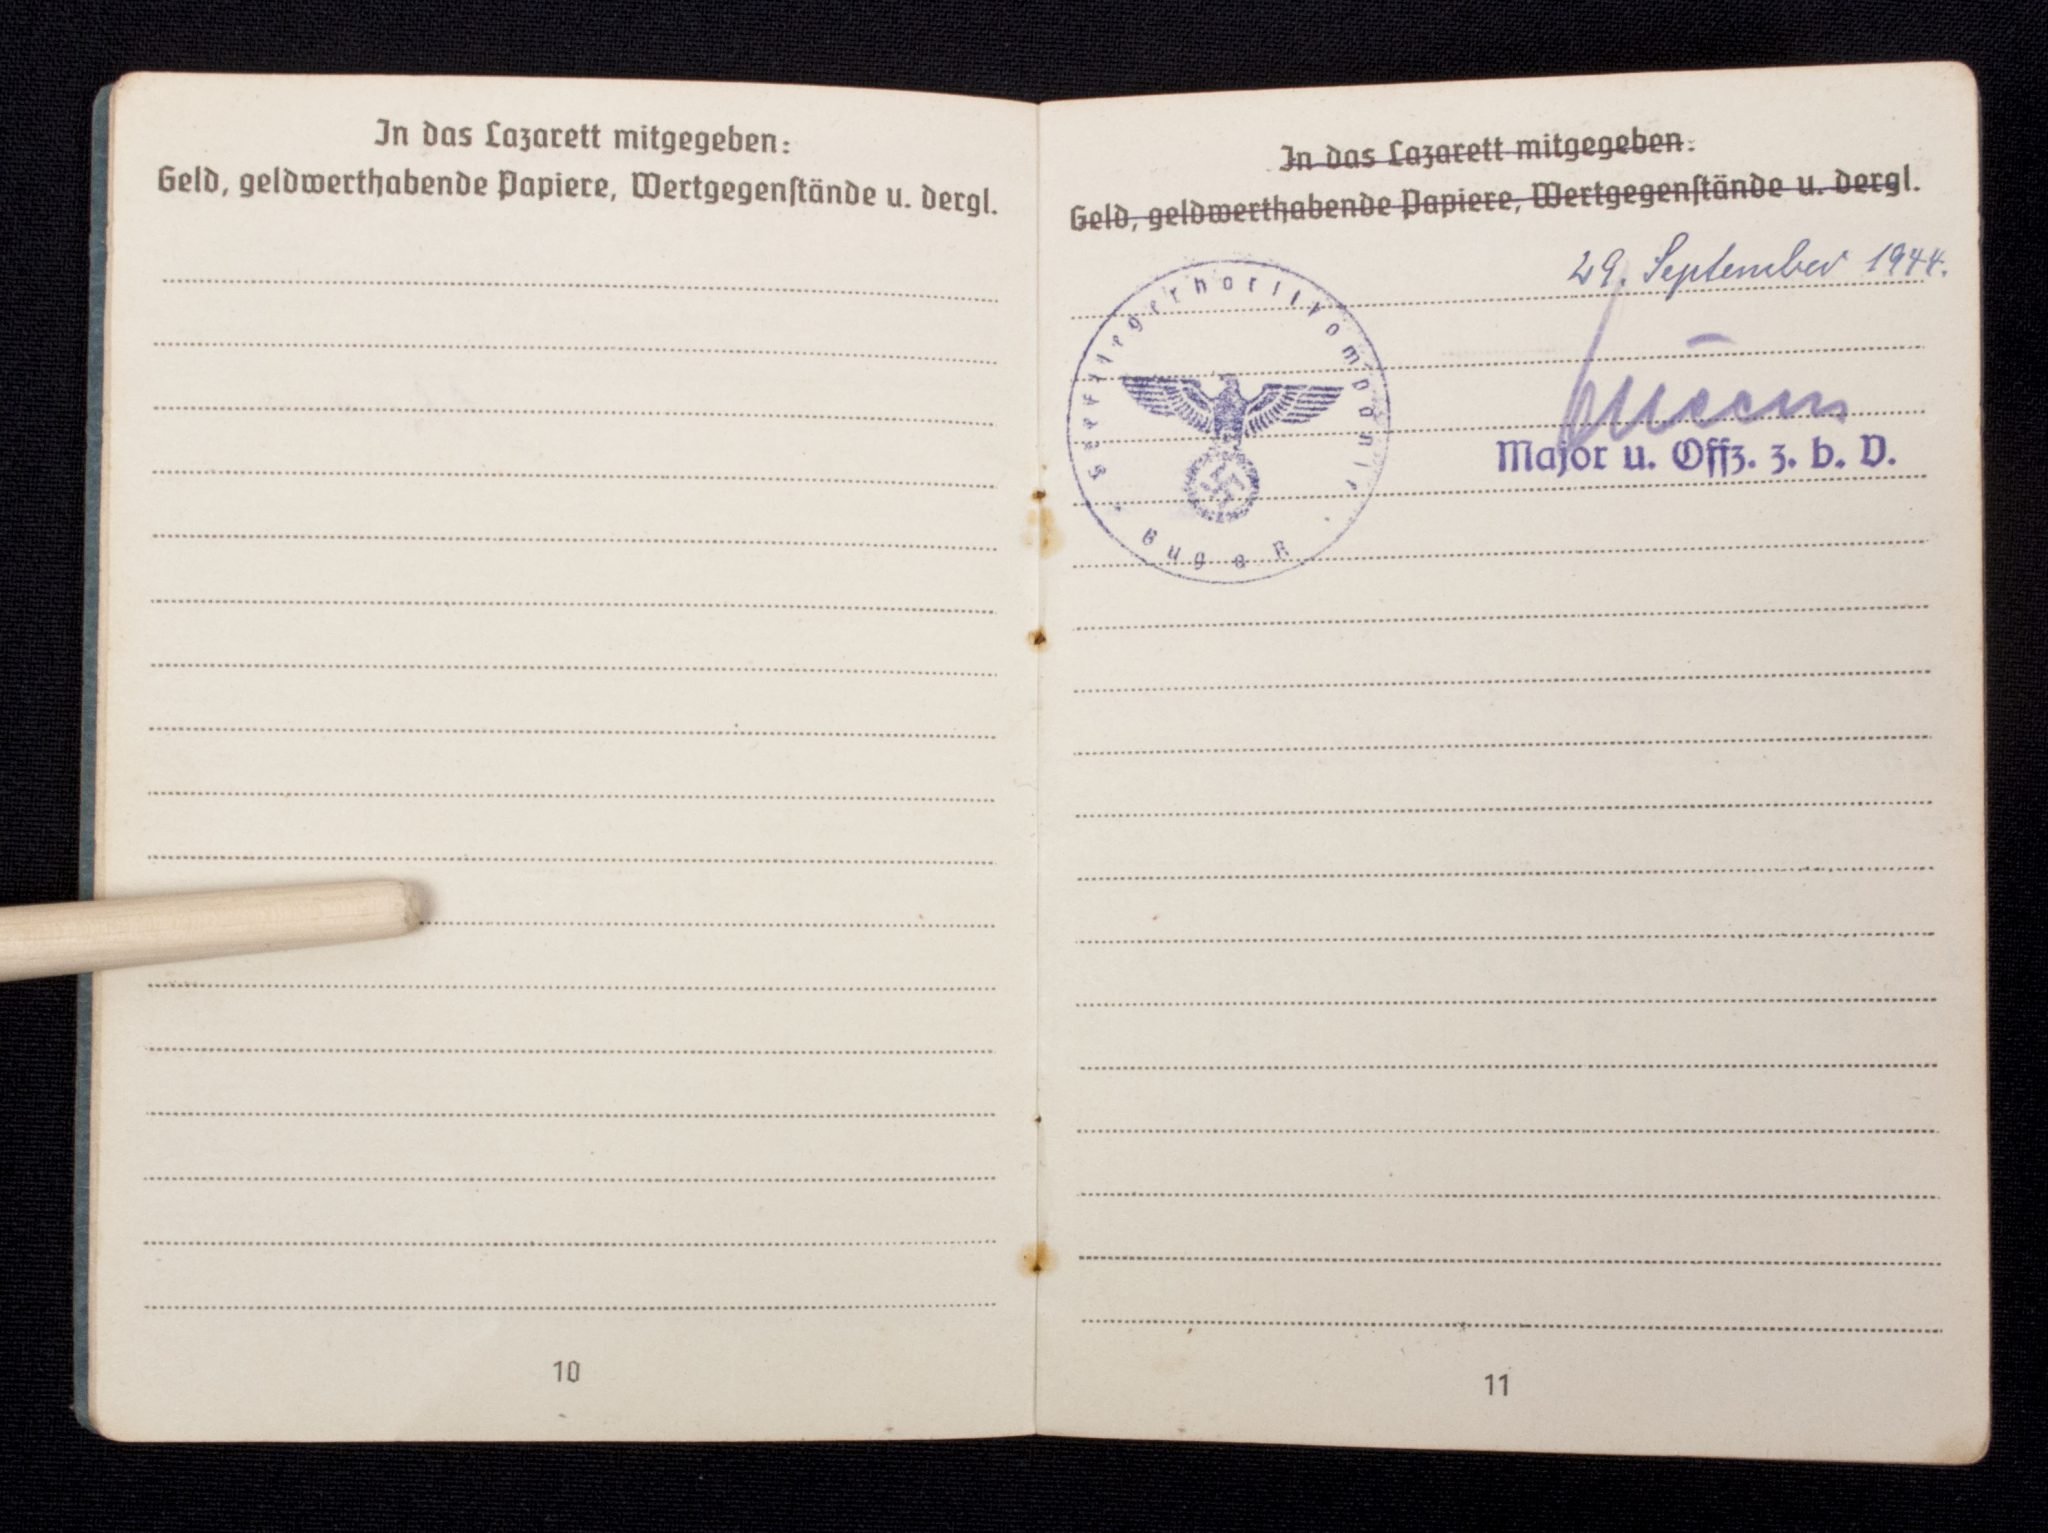 In das Lazarett mitgegeben:
Geld, geldwerthabende Papiere, Wertgegenstände u. dergl.
10
In das Lazarett mitgegeben:
Geld, geldwerthabende Papiere, Wertgegenstände u. dergl.
29. September 1944.
Seefliegerhorstkompanie
Bug a R
Major u. Offz. z. b. V.
11